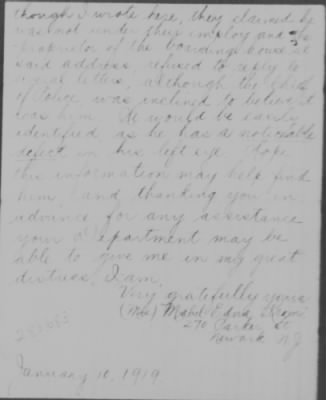 though I wrote here, they claimed he
was not under they employ and the
proprietor of the boarding house at
said address refused to reply to
several letters, although the Chief
of Police was inclined to believe it
was him. He would be easily
identified as he has a noticeable
defect in his left eye. Hope
this information may help find
him, and thanking you in
advance for any assistance
your department may be
able to give me in my great
distress, I am,
Very gratefully yours
(Mrs) Mabel Edna
270 Parker St
Newark N.J
January 10, 1919.